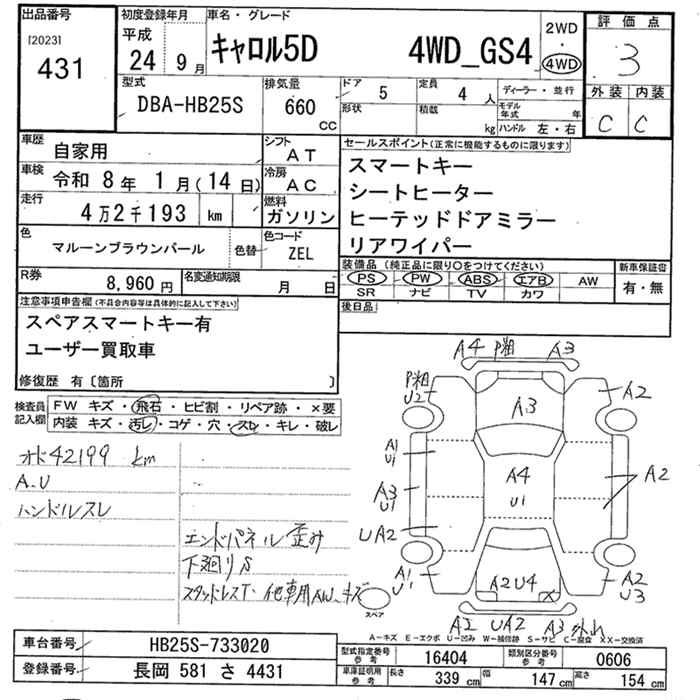 出品番号
[2023]
431
初度登録年月
平成
24 9月
車名・グレード
キャロル5D 4WD_GS4
2WD
・
4WD
評価点
3
外装 内装
C C
型式
DBA-HB25S
排気量
660 CC
ドア 5
形状
定員 4人
積載 kg
ディーラー・並行
モデル年式 年
ハンドル 左・右
車歴 自家用
シフト AT
車検 令和 8年 1月(14日)
冷房 AC
走行 4万2千193 km
燃料 ガソリン
色 マルーンブラウンパール 色替
色コード ZEL
R券 8,960円
名変通知期限 月 日
セールスポイント(正常に機能するものに限ります)
スマートキー
シートヒーター
ヒーテッドドアミラー
リアワイパー
装備品(純正品に限り○をつけてください)
PS PW ABS エアB AW
SR ナビ TV カワ
新車保証書
有・無
後日品
注意事項申告欄(不具合内容等は具体的に記入して下さい)
スペアスマートキー有
ユーザー買取車
修復歴 有〔箇所 〕
検査員記入欄
FW キズ・飛石・ヒビ割・リペア跡・×要
内装 キズ・汚レ・コゲ・穴・スレ・キレ・破レ
オド42199 km
A.U
ハンドルスレ
エンドパネル歪み
下廻りS
スタッドレスT・他車用AW.キズ
A4 P粗 A3
P粗
U2
A3
A2
A1
U1
A4
U1
A3
U1
A2
UA2
A1
U1
A2U4 X
A2
U3
スペア
A2 UA2 A3 外れ
A-キズ E-エクボ U-凹み W-補修跡 S-サビ C-腐食 XX-交換済
車台番号 HB25S-733020
登録番号 長岡 581 さ 4431
型式指定番号 参考 16404
類別区分番号 参考 0606
車庫証明用 参考 長さ 339 cm 幅 147 cm 高さ 154 cm